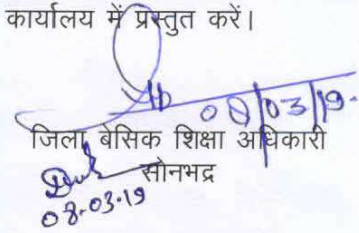 कार्यालय में प्रस्तुत करें।
08/03/19.
जिला बेसिक शिक्षा अधिकारी
सोनभद्र
08.03.19